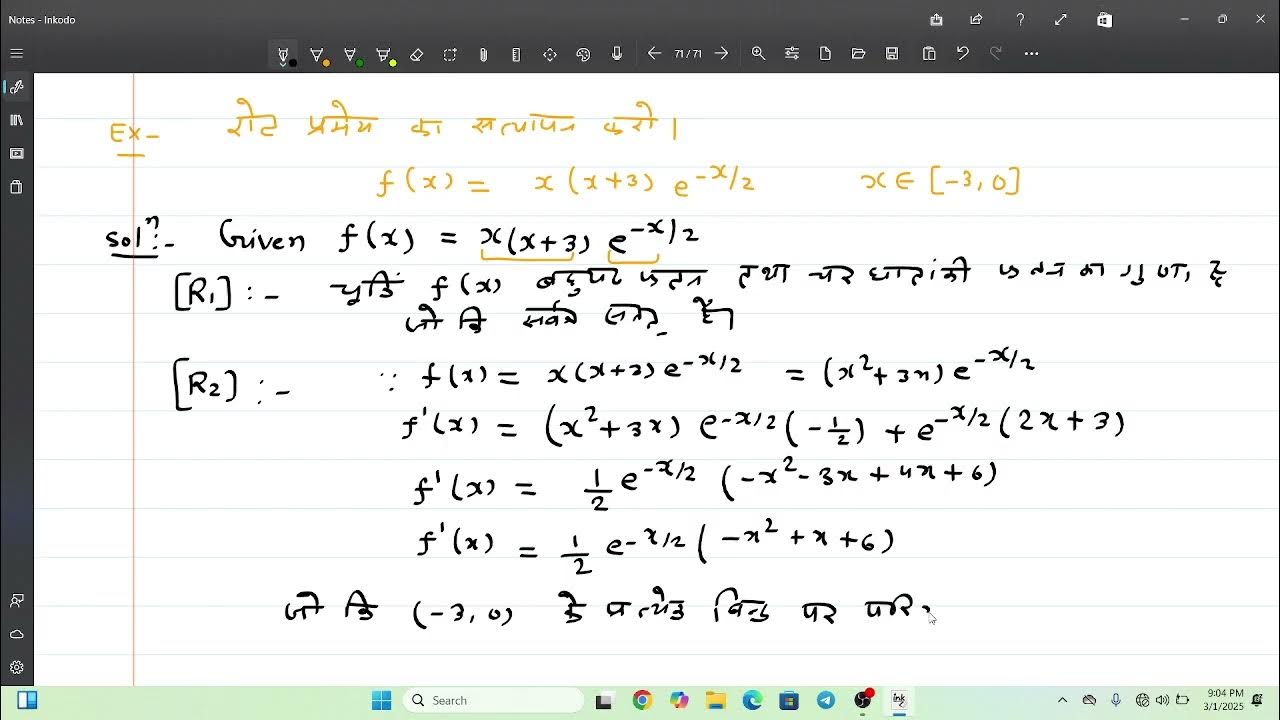 Notes - Inkodo
71/71
Ex- रोल प्रमेय का सत्यापन करो।
f(x) = x(x+3) e^{-x/2} x ∈ [-3, 0]
Solⁿ:- Given f(x) = x(x+3) e^{-x/2}
[R₁] :- चूकिं f(x) बहुपद फलन तथा चर घातांकी फलन का गुणा, है
जो कि सर्वत्र सतत् है।
[R₂] :- ∵ f(x) = x(x+3) e^{-x/2} = (x²+3x) e^{-x/2}
f'(x) = (x²+3x) e^{-x/2} (-1/2) + e^{-x/2} (2x+3)
f'(x) = 1/2 e^{-x/2} (-x²-3x+4x+6)
f'(x) = 1/2 e^{-x/2} (-x²+x+6)
जो कि (-3, 0) के प्रत्येक बिन्दु पर परि
Search
9:04 PM
3/1/2025